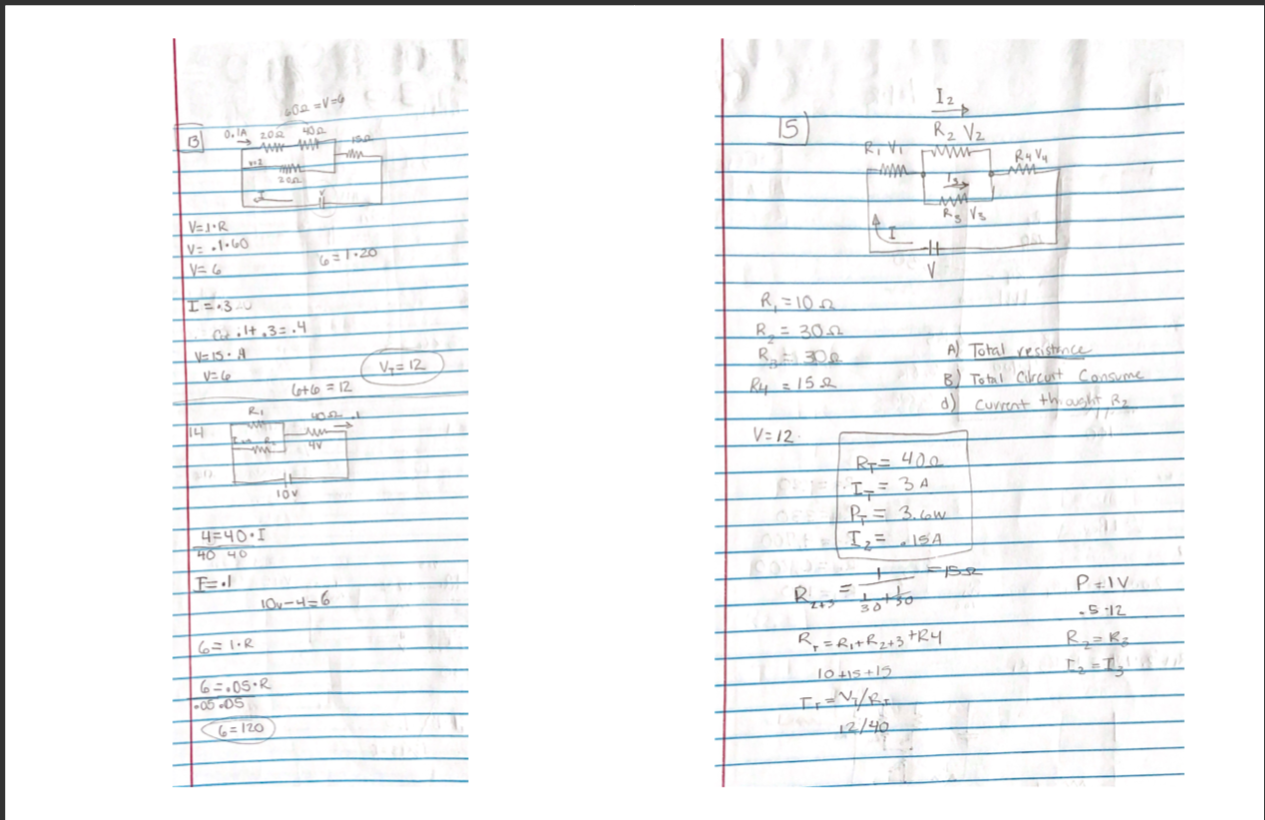 60Ω = V=6
13
0.1A 20Ω 40Ω
15Ω
20Ω
I
V
V=I·R
V= .1·60
V=6
6=I·20
I=.3
.1+.3=.4
V=15·A
V=6
VT=12
6+6=12
14
R1
40Ω .1
4V
10V
4=40·I
40 40
I=.1
10v-4=6
6=1·R
6=.05·R
.05 .05
6=120
15
I2
R2 V2
R1 V1
R4 V4
I3
R3 V3
I
V
R1=10Ω
R2=30Ω
R3=30Ω
R4=15Ω
A) Total resistance
B) Total Circuit Consume
d) Current throught R2
V=12
RT= 40Ω
IT= 3A
PT= 3.6W
I2= .15A
R2+3 = 1/(1/30+1/30) =15Ω
P=IV
.5·12
RT=R1+R2+3+R4
R2=R3
10+15+15
I2=I3
IT=VT/RT
12/40